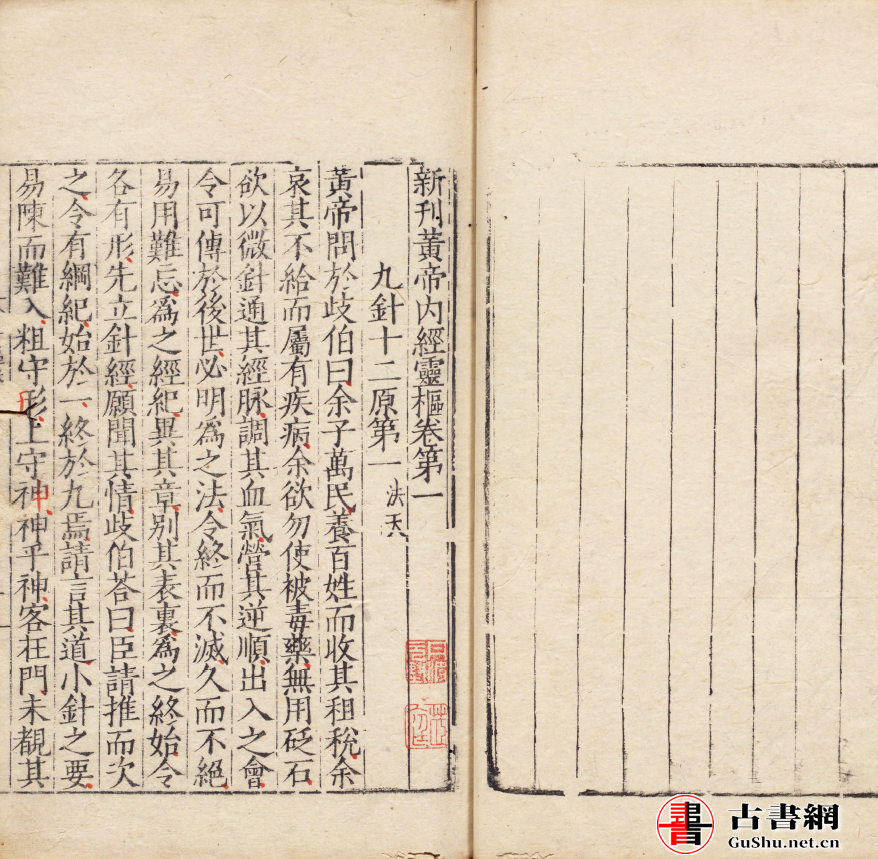 新刊黃帝內經靈樞卷第一
九針十二原第一 法天
黃帝問於歧伯曰余子萬民養百姓而收其租稅余
哀其不給而屬有疾病余欲勿使被毒藥無用砭石
欲以微針通其經脉調其血氣營其逆順出入之會
令可傳於後世必明爲之法令終而不滅久而不絕
易用難忘爲之經紀異其章別其表裏爲之終始令
各有形先立針經願聞其情歧伯荅曰臣請推而次
之令有綱紀始於一終於九焉請言其道小針之要
易陳而難入粗守形上守神神乎神客在門未覩其
書 古書網
GuShu.net.cn